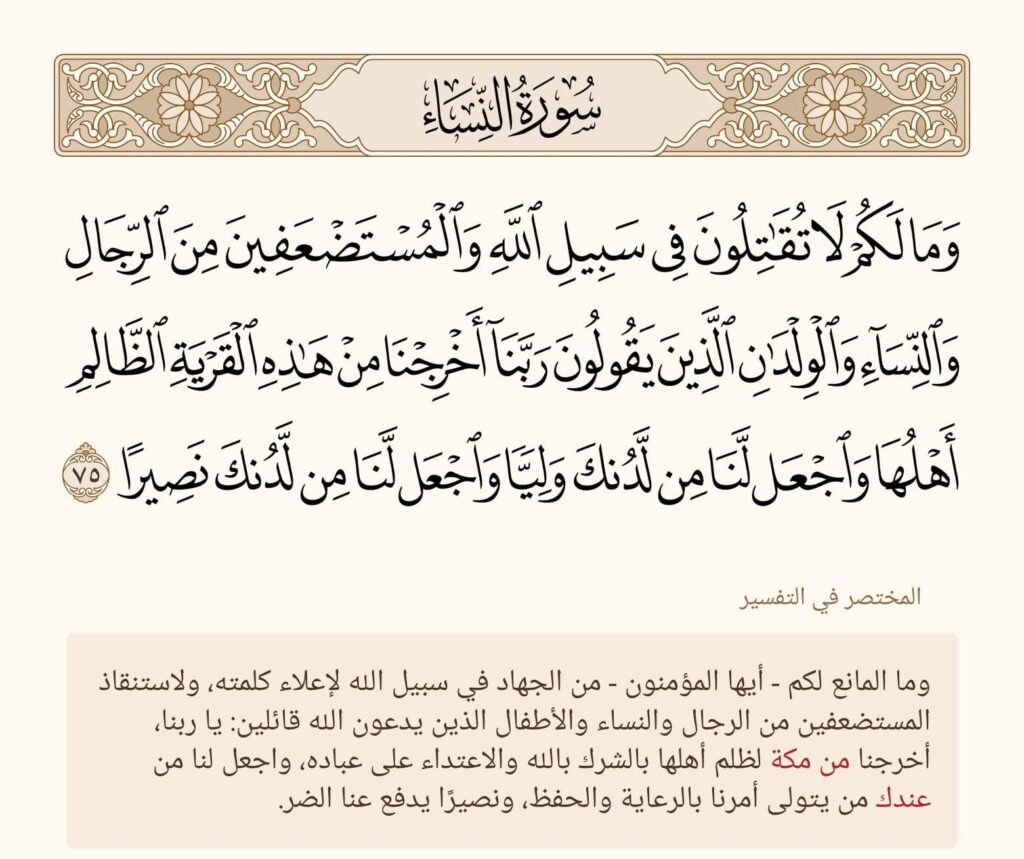 سُورَةُ النِّسَاءِ
وَمَا لَكُمۡ لَا تُقَٰتِلُونَ فِي سَبِيلِ ٱللَّهِ وَٱلۡمُسۡتَضۡعَفِينَ مِنَ ٱلرِّجَالِ
وَٱلنِّسَآءِ وَٱلۡوِلۡدَٰنِ ٱلَّذِينَ يَقُولُونَ رَبَّنَآ أَخۡرِجۡنَا مِنۡ هَٰذِهِ ٱلۡقَرۡيَةِ ٱلظَّالِمِ
أَهۡلُهَا وَٱجۡعَل لَّنَا مِن لَّدُنكَ وَلِيّٗا وَٱجۡعَل لَّنَا مِن لَّدُنكَ نَصِيرًا ٧٥
المختصر في التفسير
وما المانع لكم - أيها المؤمنون - من الجهاد في سبيل الله لإعلاء كلمته، ولاستنقاذ
المستضعفين من الرجال والنساء والأطفال الذين يدعون الله قائلين: يا ربنا،
أخرجنا من مكة لظلم أهلها بالشرك بالله والاعتداء على عباده، واجعل لنا من
عندك من يتولى أمرنا بالرعاية والحفظ، ونصيرًا يدفع عنا الضر.